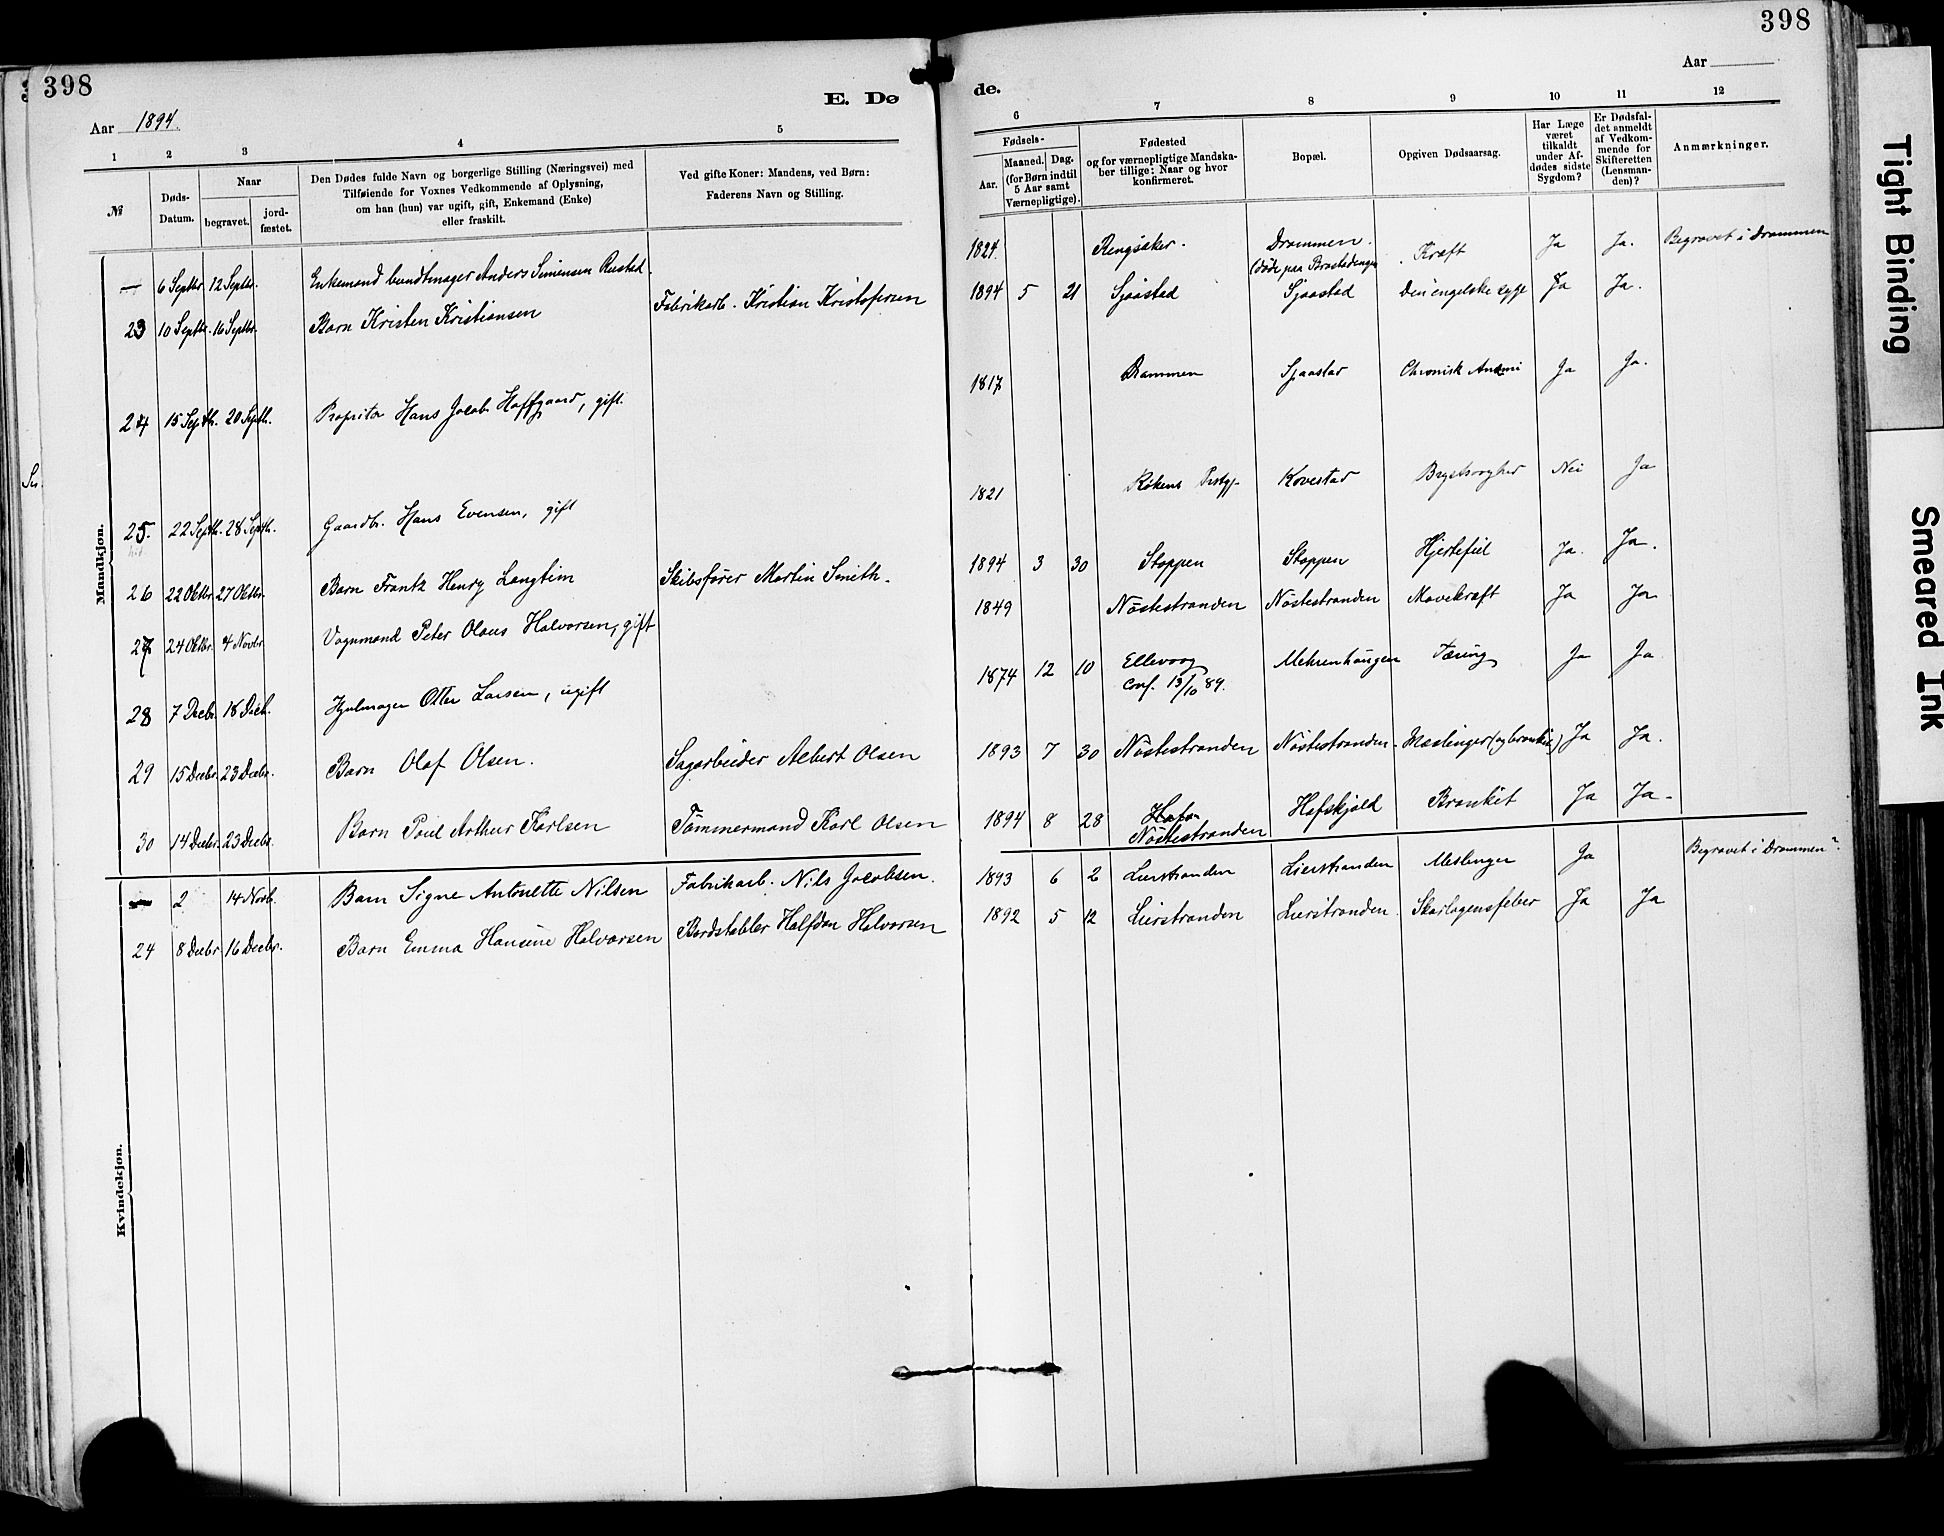 398
398
Aar 1894.
E. Dø
de.
Aar
1 2 3 4 5 6 7 8 9 10 11 12
№
Døds-Datum.
Naar
begravet.
jord-fæstet.
Den Dødes fulde Navn og borgerlige Stilling (Næringsvei) med
Tilføiende for Voxnes Vedkommende af Oplysning,
om han (hun) var ugift, gift, Enkemand (Enke)
eller fraskilt.
Ved gifte Koner: Mandens, ved Børn:
Faderens Navn og Stilling.
Fødsels-
Aar.
Maaned. Dag.
(for Børn indtil
5 Aar samt
Værnepligtige).
Fødested
og for værnepligtige Mandska-
ber tillige: Naar og hvor
konfirmeret.
Bopæl.
Opgiven Dødsaarsag.
Har Læge
været
tilkaldt
under Af-
dødes sidste
Sygdom?
Er Dødsfal-
det anmeldt
af Vedkom-
mende for
Skifteretten
(Lensman-
den)?
Anmærkninger.
Mandkjøn.
— 6 Septbr 12 Septbr. Enkemand bundtmager Anders Simensen Rustad. 1824. Ringsaker. Drammen. Kræft Ja Ja. Begravet i Drammen
(døde paa
23 10 Septbr. 16 Septbr. Barn Kristen Kristiansen Fabrikarb. Kristian Kristofersen 1894 5 21 Sjaastad Sjaastad Den engelske syge Ja Ja.
24 15 Septb. 20 Septb. Propritær Hans Jacob Hoffgaard, gift. 1817 Drammen Sjaastad Chronisk Anæmi Ja Ja.
25. 22 Septb. 28 Septb. Gaardbr. Hans Evensen, gift 1821 Røkens Prstgj. Kovestad Nei Ja
26 22 Oktbr 27 Oktbr. Barn Frantz Henry Langtim Skibsfører Martin Smith. 1894 3 30 Stoppen Stoppen Hjertefeil Ja. Ja.
27 24 Oktbr. 4 Novbr. Vognmand Peter Olaus Halvorsen, gift 1849 Nøstestranden Nøstestranden Mavekræft Ja Ja
28 7 Decbr. 18 Decb. Hjulmager Otter Larsen, ugift 1874 12 10 Ellevaag Mehrenhaugen Tæring Ja Ja
Conf. 13/10 89.
29 15 Decbr. 23 Decbr. Barn Olaf Olsen. Sagarbeider Albert Olsen 1893 7 30 Nøstestranden Nøstestranden Meslinger (og bronkit) Ja Ja.
30 14 Decbr. 23 Decbr. Barn Poul Arthur Karlsen Tømmermand Karl Olsen 1894 8 28 Nøstestranden Hafskjold Bronkit Ja Ja.
Kvindekjøn.
— 2 14 Novb. Barn Signe Antonette Nilsen Fabrikarb. Nils Jacobsen. 1893 6 2 Lierstranden Lierstranden Meslinger Ja Begravet i Drammen?
24 8 Decbr 16 Decbr. Barn Emma Hansine Halvorsen Bordstabler Halfdan Halvorsen 1892 5 12 Lierstranden Lierstranden Skarlagensfeber Ja Ja
Tight Binding
Smeared Ink